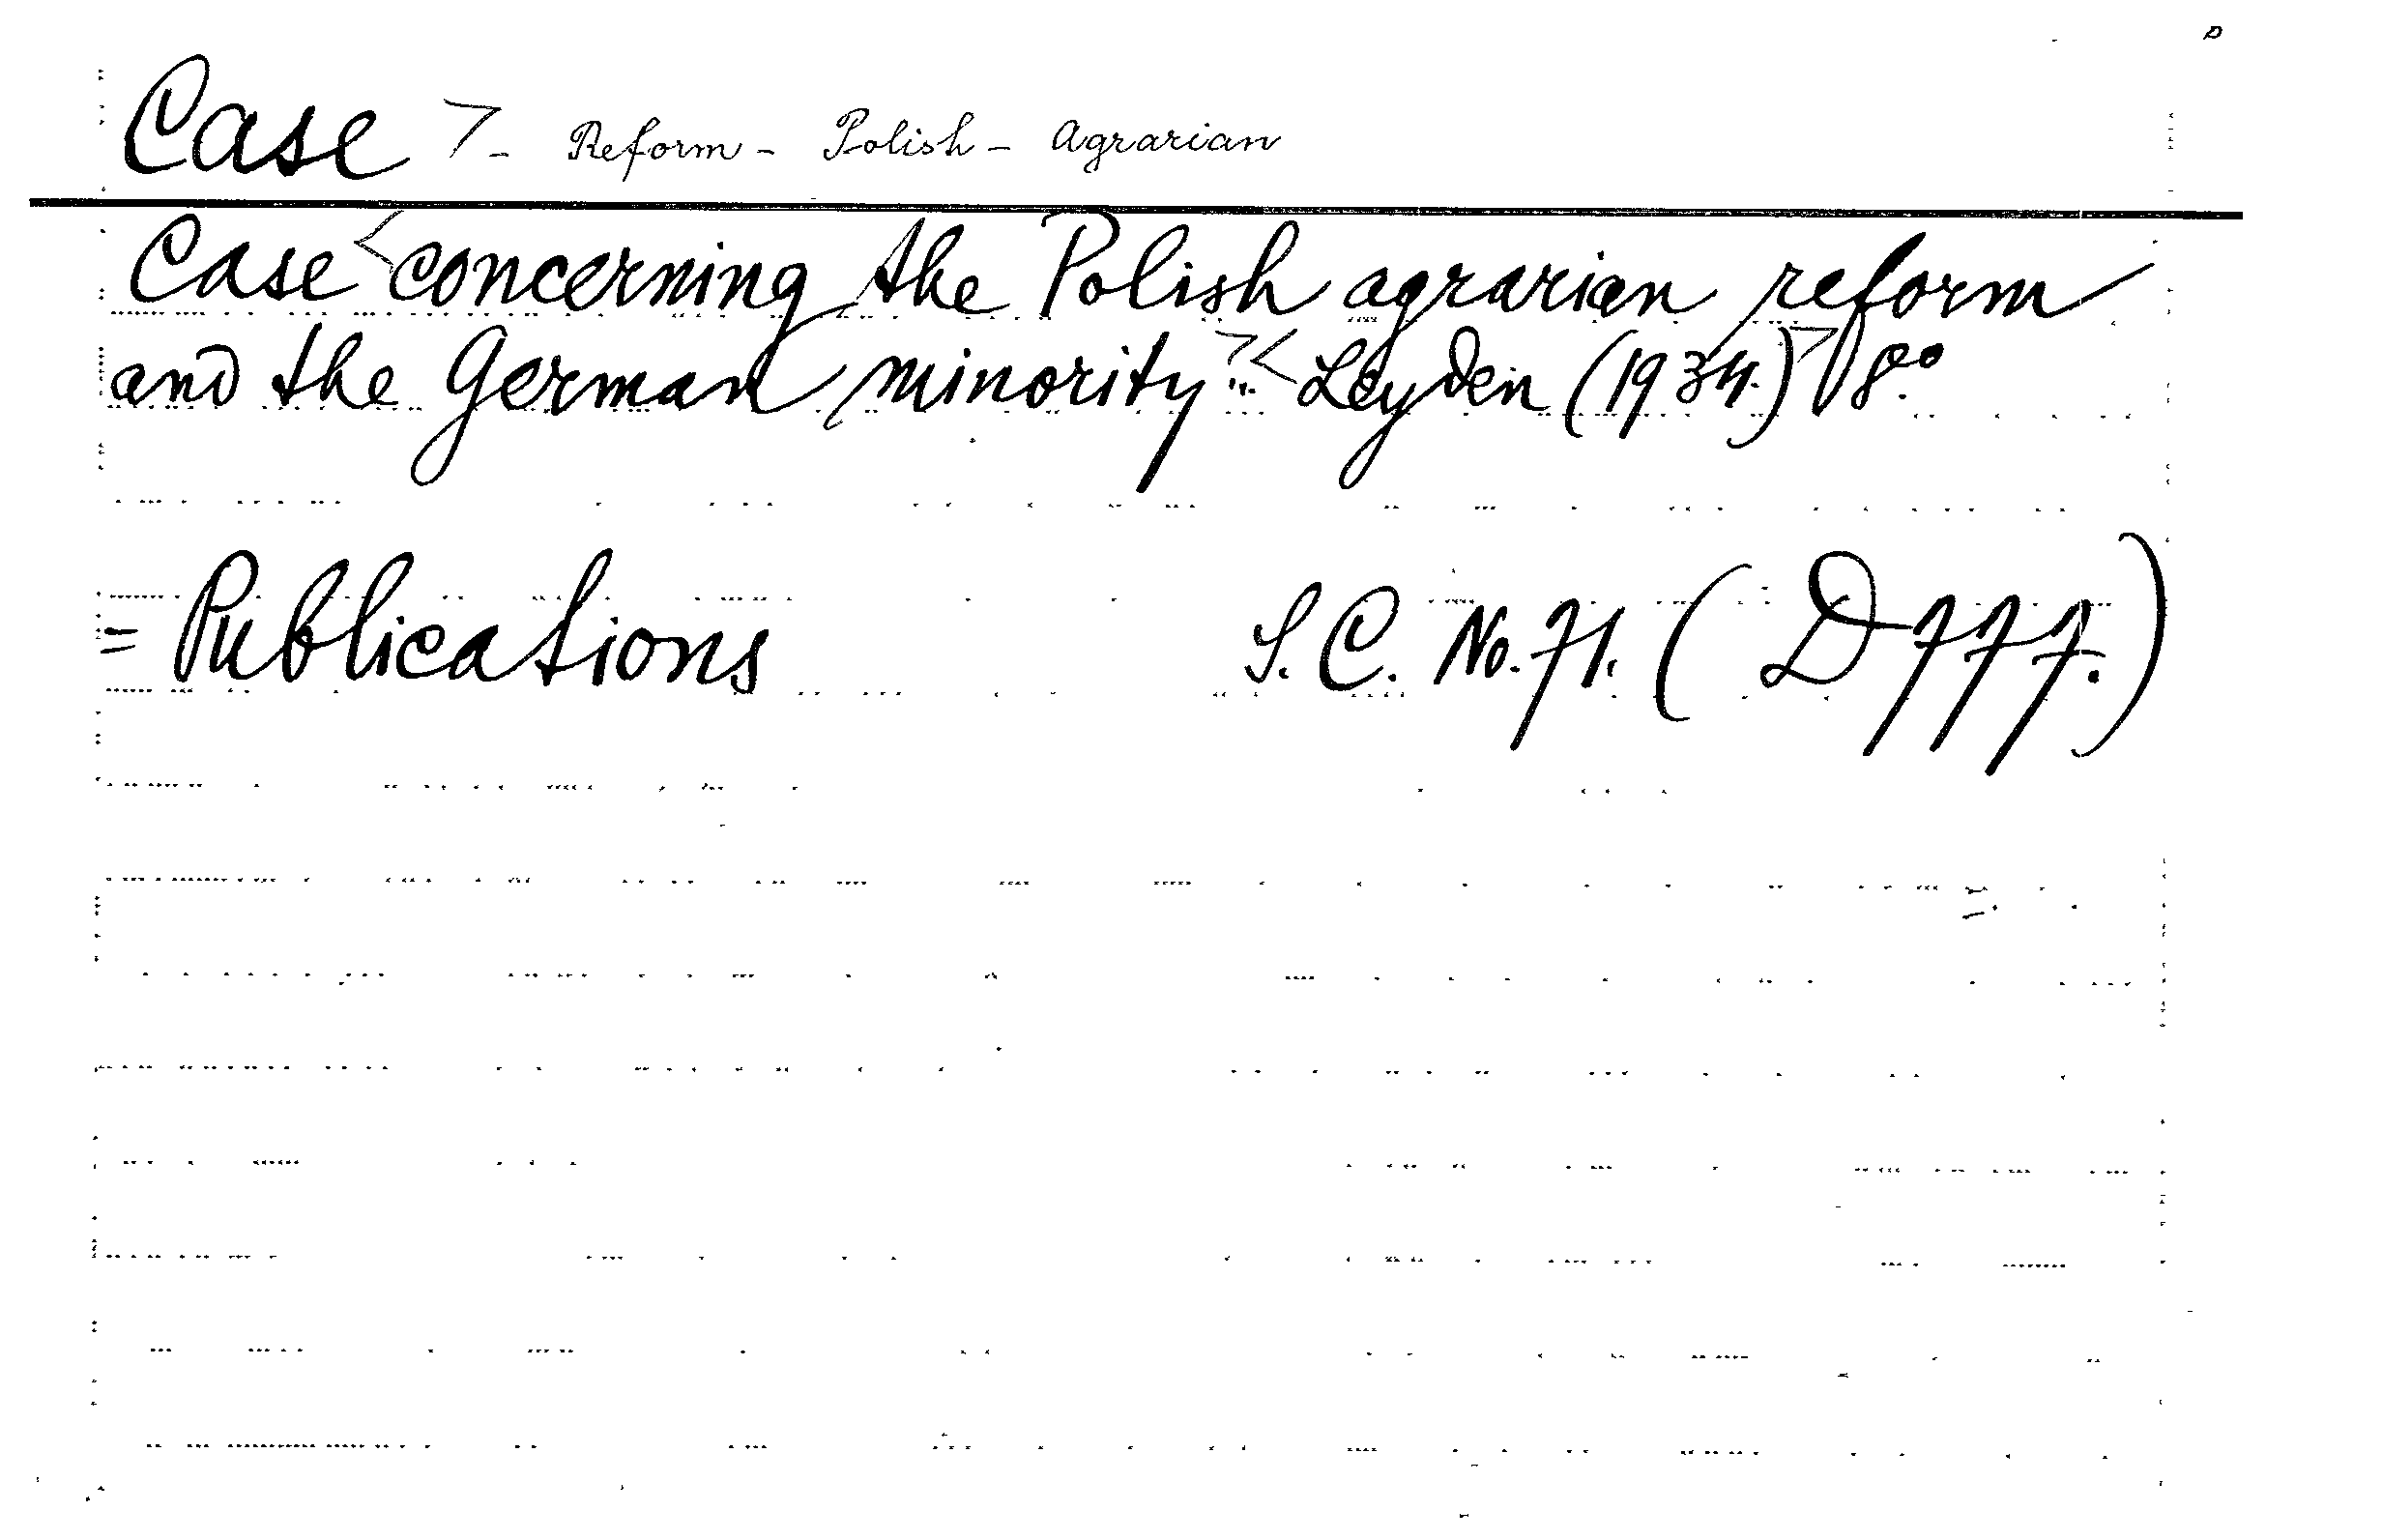 Case > - Reform - Polish - Agrarian
Case < concerning the Polish agrarian reform
and the German minority > ... < Leyden (1934.) > 8.º
= Publications S. C. No. 71. ( D 777. )